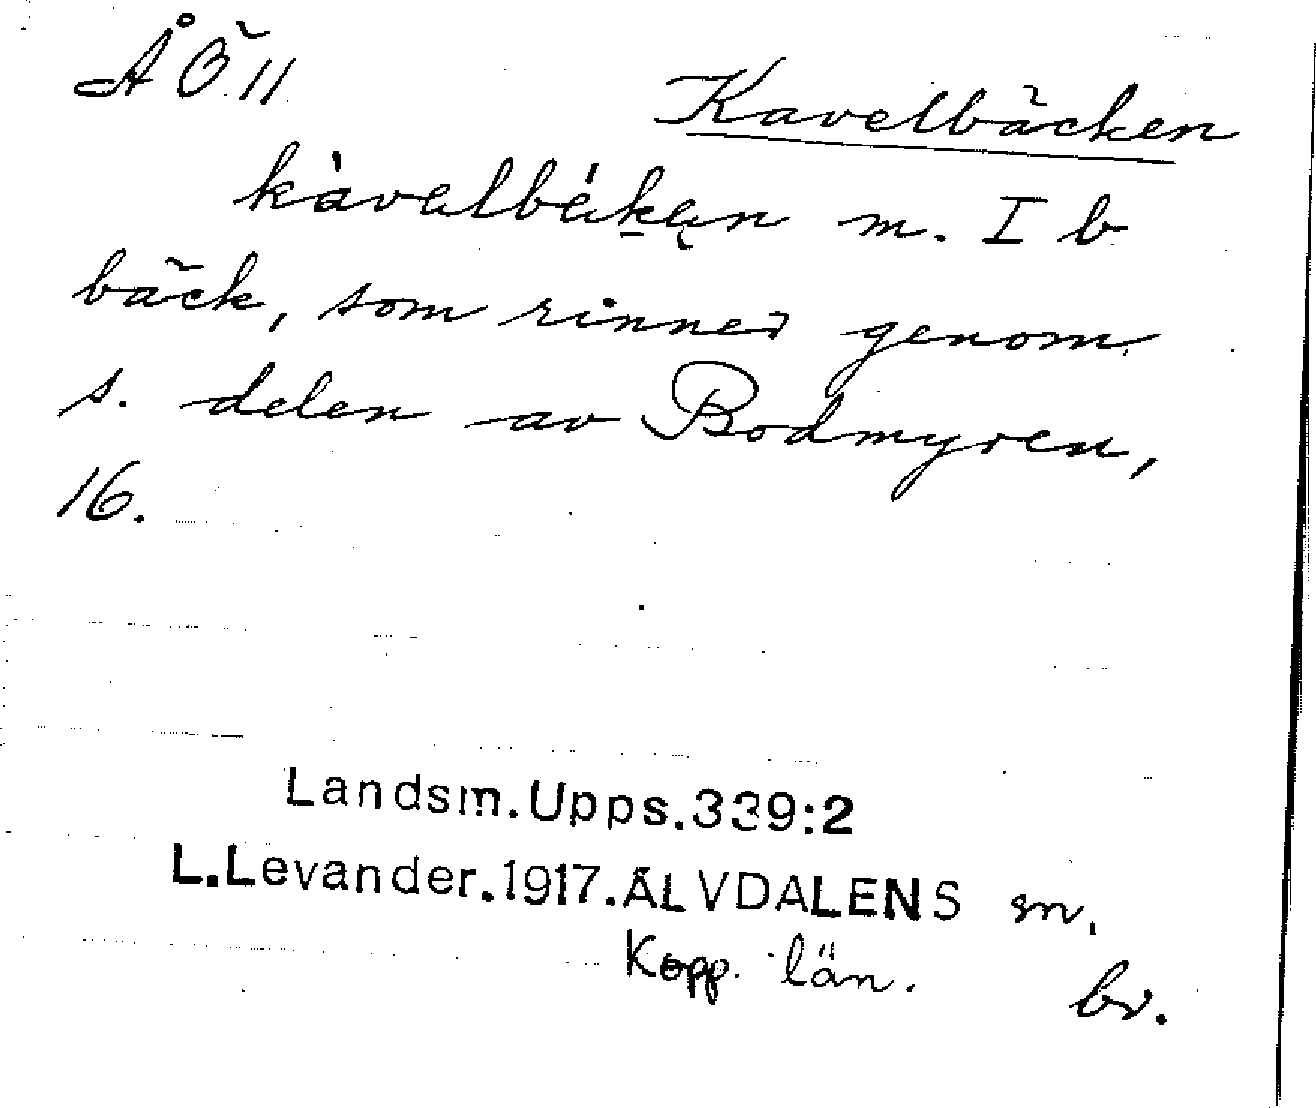 ÅÖ 11
Kavelbäcken
kàvalbä́kan m. I b
bäck, som rinner genom
s. delen av Bodmyren,
16.
Landsm.Upps.339:2
L.Levander.1917.ÄLVDALENS sn.
Kopp. län.
bv.